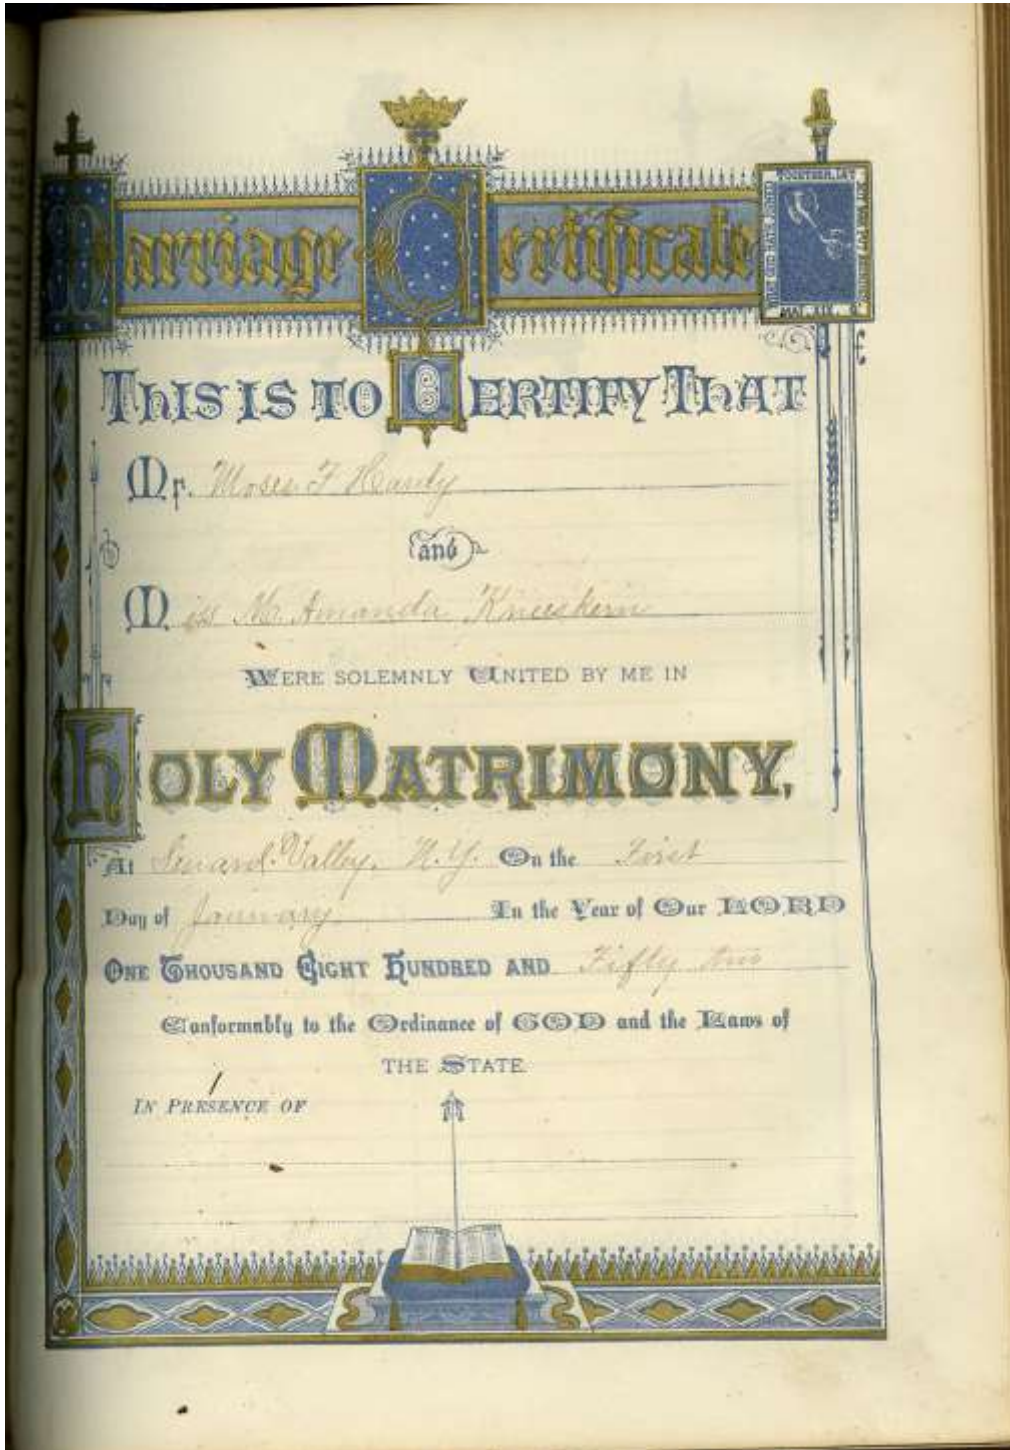 Marriage Certificate
WHAT GOD HATH JOINED
TOGETHER, LET
NOT MAN PUT ASUNDER
MAT. XIX. 6
THIS IS TO CERTIFY THAT
Mr. Moses F Hardy
and
Miss M. Amanda Kneeskern
WERE SOLEMNLY UNITED BY ME IN
HOLY MATRIMONY,
At Valley, N.Y. On the First
Day of January In the Year of Our LORD
ONE THOUSAND EIGHT HUNDRED AND Fifty two
Conformably to the Ordinance of GOD and the Laws of
THE STATE
IN PRESENCE OF